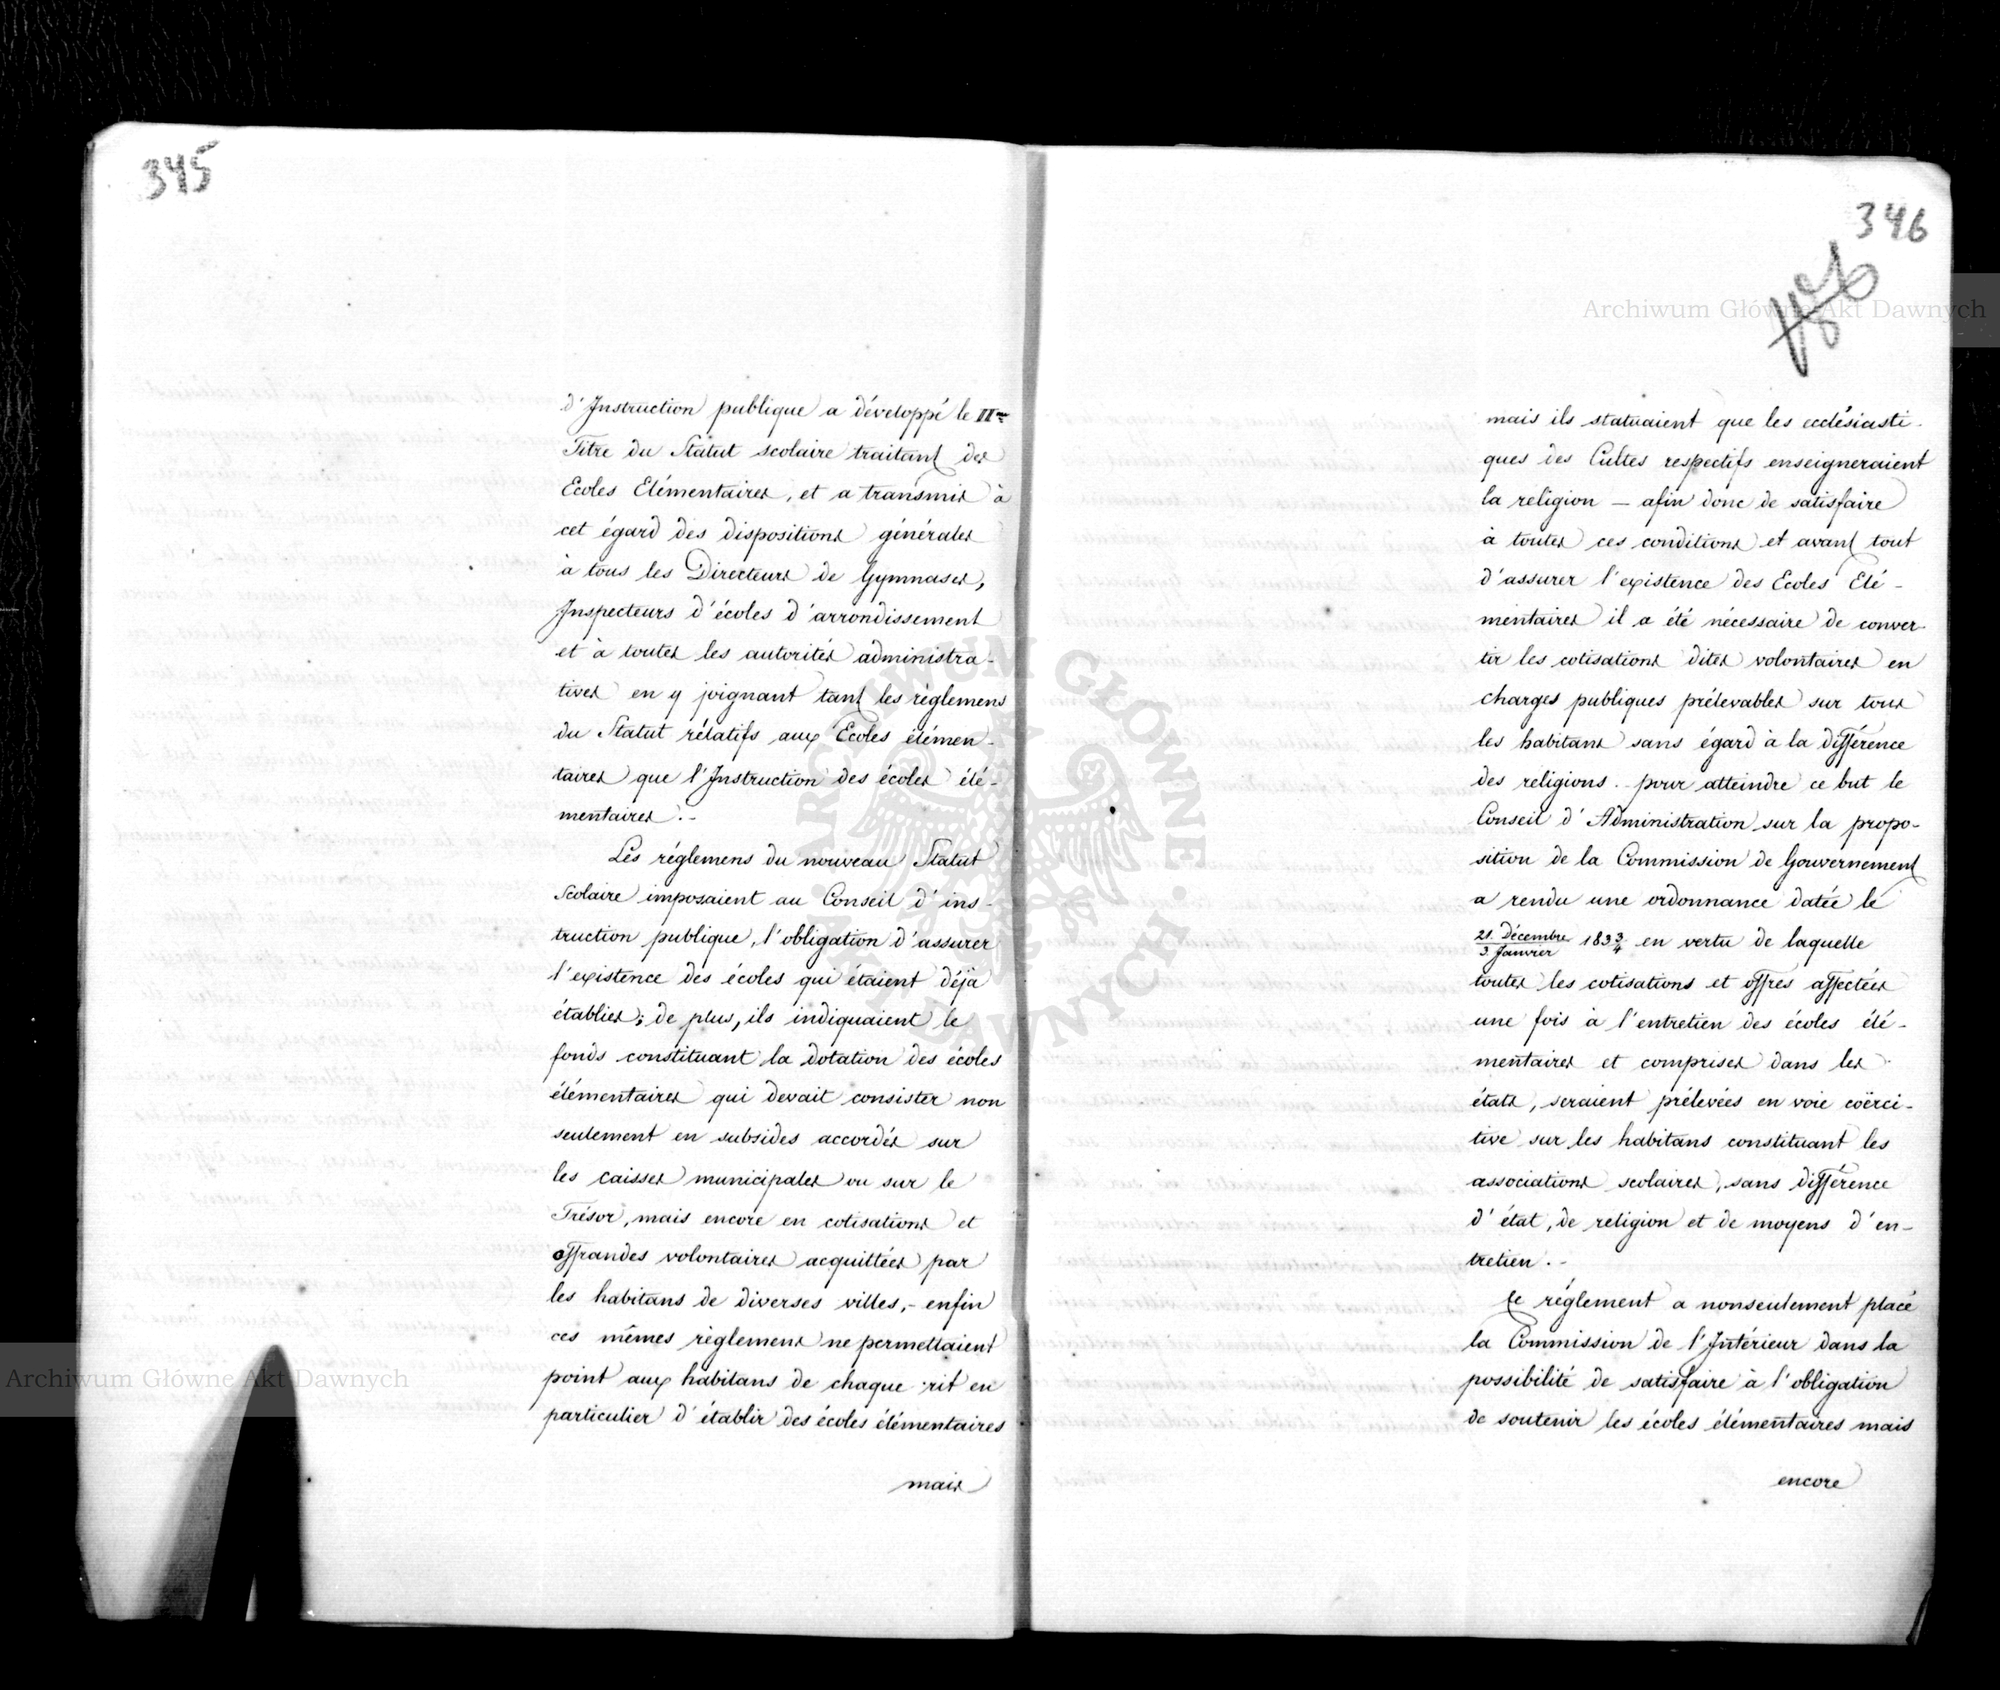 345
d'Instruction publique a développé le IIme
Titre du Statut scolaire traitant des
Ecoles Elémentaires, et a transmis à
cet égard des dispositions générales
à tous les Directeurs de Gymnases,
Inspecteurs d'écoles d'arrondissement
et à toutes les autorités administra-
tives en y joignant tant les règlemens
du Statut rélatifs aux Ecoles élémen-
taires que l'Instruction des écoles élé-
mentaires.-
Les réglemens du nouveau Statut
Scolaire imposaient au Conseil d'ins-
truction publique, l'obligation d'assurer
l'existence des écoles qui étaient déjà
établies; de plus, ils indiquaient le
fonds constituant la dotation des écoles
élémentaires qui devait consister non
seulement en subsides accordés sur
les caisses municipales ou sur le
Trésor, mais encore en cotisations et
offrandes volontaires acquittées par
les habitans de diverses villes,- enfin
ces mêmes règlemens ne permettaient
point aux habitans de chaque rit en
particulier d'établir des écoles élémentaires
mais
346
mais ils statuaient que les ecclésiasti-
ques des Cultes respectifs enseigneraient
la religion — afin donc de satisfaire
à toutes ces conditions et avant tout
d'assurer l'existence des Ecoles Elé-
mentaires il a été nécessaire de conver-
tir les cotisations dites volontaires en
charges publiques prélevables sur tous
les habitans sans égard à la différence
des religions.- pour atteindre ce but le
Conseil d'Administration sur la propo-
sition de la Commission de Gouvernement
a rendu une ordonnance datée le
21. Décembre/3. Janvier 1833/4 en vertu de laquelle
toutes les cotisations et offres affectées
une fois à l'entretien des écoles élé-
mentaires et comprises dans les
états, seraient prélevées en voie coërci-
tive sur les habitans constituant les
associations scolaires, sans différence
d'état, de religion et de moyens d'en-
tretien.-
Ce réglement a nonseulement placé
la Commission de l'Intérieur dans la
possibilité de satisfaire à l'obligation
de soutenir les écoles élémentaires mais
encore
Archiwum Główne Akt Dawnych
Archiwum Główne Akt Dawnych
ARCHIWUM GŁÓWNE AKT DAWNYCH